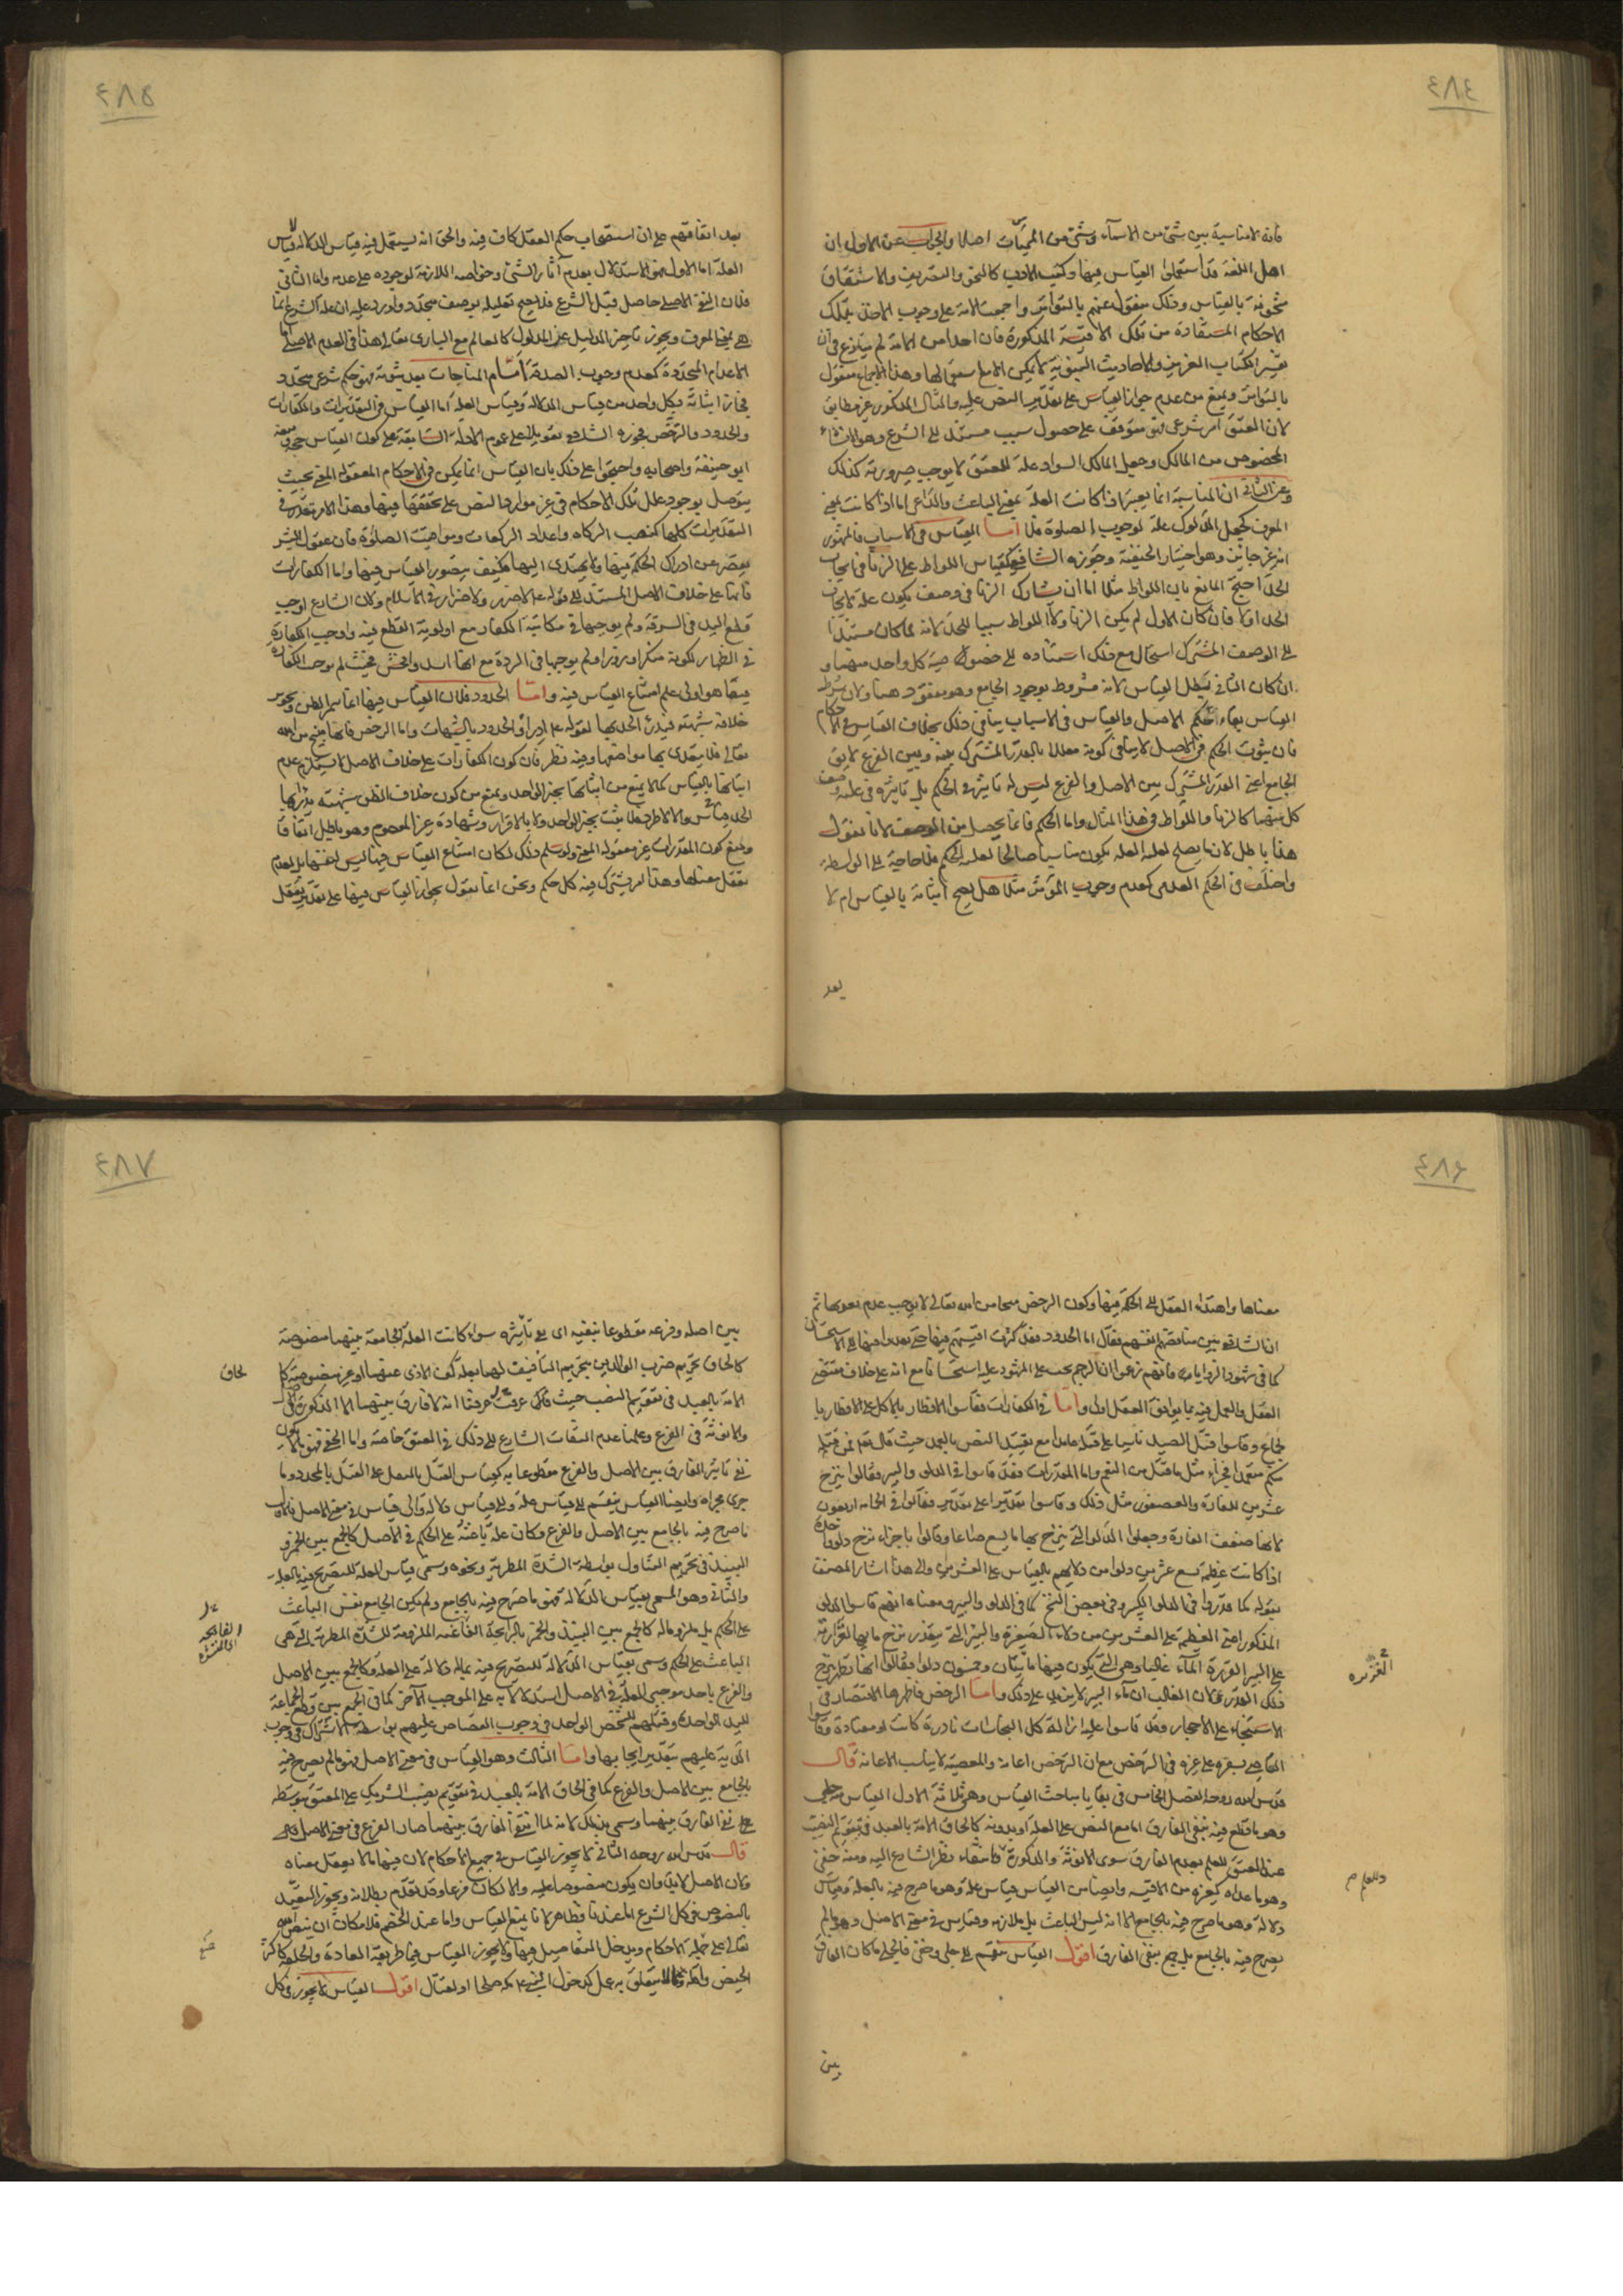 ٤٨٤
فانه لا مناسبة بين شئ من الاسماء وشئ من المسميات اصلا والجواب عن الاول ان
اهل اللغة قد استعملوا القياس فيها وكتب الادب كالنحو والتصريف والاشتقاق
مشحونة بالقياس وذلك منقول عنهم بالتواتر واجمعت الامة على وجوب الاخذ بتلك
الاحكام المستفادة من تلك الاقيسة المذكورة فان احدا من الامة لم ينازع في ان
تفسير الكتاب العزيز والاحاديث النبوية لا يمكن الا مع استعمالها وهذا الاجماع منقول
بالتواتر ويمنع من عدم جواز القياس على تقدير النص عليه والمثال المذكور غير مطابق
لان العتق امر شرعى فهو متوقف على حصول سبب مستند الى الشرع وهو الانشاء
المخصوص من المالك وجعل المالك السواد علة للعتق لا يوجب صيرورته كذلك
وعن الثانى ان المناسبة انما يعتبر اذا كانت العلة بمعنى الباعث والداعى اما اذا كانت بمعنى
المعرف كجعل الدلوك علة لوجوب الصلوة فلا اما القياس في الاسباب فالمشهور
انه غير جائز وهو اختيار الحنفية وجوزه الشافعية كقياس اللواط على الزنا في ايجاب
الحد احتج المانع بان اللواط مثلا اما ان يشارك الزنا في وصف يكون علة لايجاب
الحد اولا فان كان الاول لم يكن الزنا ولا اللواط سببا للحد لانه لما كان مستندا
الى الوصف المشترك استحال مع ذلك استناده الى خصوصية كل واحد منهما و
ان كان الثانى بطل القياس لانه مشروط بوجود الجامع وهو مفقود هنا ولان شرط
القياس بقاء حكم الاصل والقياس في الاسباب ينافى ذلك بخلاف القياس في الاحكام
فان ثبوت الحكم في الاصل لا ينافى كونه معللا بالقدر المشترك بينه وبين الفرع لا يق
الجامع اعنى القدر المشترك بين الاصل والفرع ليس له تاثير في الحكم بل تاثيره في علية وصف
كل منهما كالزنا واللواط في هذا المثال واما الحكم فانما يحصل من الوصف لانا نقول
هذا باطل لان ما يصلح لعلية العلة يكون مناسبا صالحا لعلية الحكم فلا حاجة الى الواسطة
واختلف في الحكم العدمى كعدم وجوب الوتر مثلا هل يصح اثباته بالقياس ام لا
بعد
٤٨٥
بعد اتفاقهم على ان استصحاب حكم العقل كاف فيه والحق انه يستعمل فيه قياس الدلالة لا قياس
العلة اما الاول فهو الاستدلال بعدم آثار الشئ وخواصه اللازمة لوجوده على عدمه واما الثانى
فلان النفى الاصلى حاصل قبل الشرع فلا يصح تعليله بوصف متجدد واورد عليه ان علة الشرع انما
هى بمعنى المعرف ويجوز تاخير الدليل عن المدلول كالعالم مع البارى تعالى هذا في العدم الاصلى اما
الاعدام المتجددة كعدم وجوب الصدقة امام المناجات بعد ثبوته فهو حكم شرعى متجدد
فجاز اثباته بكل واحد من قياس الدلالة وقياس العلة اما القياس في التقديرات والكفارات
والحدود والرخص فجوزه الشافعى تعويلا على عموم الادلة السابقة على كون القياس حجة ومنعه
ابو حنيفة واصحابه واحتجوا على ذلك بان القياس انما يمكن في الاحكام المعقولة المعنى بحيث
يتوصل بوجود علل تلك الاحكام في غير موارد النص على تحققها فيها وهذا الامر متعذر في
التقديرات كلها كنصب الزكاة واعداد الركعات ومواقيت الصلوة فان عقول البشر
يقصر عن ادراك الحكمة فيها ولا يهتدى اليها فكيف يتصور القياس فيها واما الكفارات
فانها على خلاف الاصل المستند الى قوله عليه لا ضرر ولا ضرار في الاسلام ولان الشارع اوجب
قطع اليد في السرقة ولم يوجبها في مكاتبة الكفار مع اولوية القطع فيه واوجب الكفارة
في الظهار لكونه منكرا وزورا ولم يوجبها في الردة مع انها اشد وافحش فحيث لم يوجب الكفارة
فيما هو اولى علم امتناع القياس فيه واما الحدود فلان القياس فيها انما يثمر الظن وتجويز
خلافه شبهة فيدرئ الحد بها لقوله عليه ادرأوا الحدود بالشبهات واما الرخص فانها منح من الله
تعالى فلا يتعدى بها مواضعها وفيه نظر فان كون الكفارات على خلاف الاصل لا يستلزم عدم
اثباتها بالقياس كما لا يمنع من اثباتها بخبر الواحد ويمنع من كون خلاف الظن شبهة يدرأ بها
الحد والا لما يثبت بخبر الواحد ولا بالاقرار وشهادة غير المعصوم وهو باطل اتفاقا
ويمنع كون المقدرات غير معقولة المعنى ولو سلم ذلك لكان امتناع القياس فيها ليس لنفسها بل لعدم
تعقل معناها وهذا امر يشترك فيه كل حكم ونحن انما نقول بجواز القياس فيها على تقدير تعقل
٤٨٦
معناها واهتداء العقل الى الحكمة فيها وكون الرخص منحا من الله تعالى لا يوجب عدم تعديها ثم
ان الشافعى بين مناقضتهم انفسهم فقال اما الحدود فقد كثرت اقيستهم فيها حتى تعدوا فيها الى الاستحسان
كما في شهود الزوايا فانهم زعموا ان الرجم يجب على المشهود عليه استحسانا مع انه على خلاف مقتضى
العقل والعمل فيه بما يوافق العقل اولى واما في الكفارات فقاسوا الافطار بالاكل على الافطار با
لجماع وقاسوا قتل الصيد ناسيا على قتله عامدا مع تقييد النص بالعمد حيث قال تعالى فمن قتله
منكم متعمدا فجزاء مثل ما قتل من النعم واما المقدرات فقد قاسوا في الدلو والبير فقالوا ينزح
عشرين للفارة والعصفور مثل ذلك وقاسوا تقديرا على تقدير فقالوا في الحمامة اربعون
لانها ضعف الفارة وجعلوا الدلو التى ينزح بها ما يسع صاعا وقالوا باجزاء نزح دلو واحدة
اذا كانت عظيمة تسع عشرين دلوا من دلائهم بالقياس على العشرين والى هذا اشار المصنف
بقوله كما قدروا في الدلو الكبير وفي بعض النسخ كما في الدلو والبير ومعناه انهم قاسوا الدلو
المذكور اعنى العظيمة على العشرين من دلاء الصغيرة والبئر التى يتعذر نزح مائها لغزارته
على البير الغزيرة الماء غالبا وهى التى يكون فيها مائتان وخمسون دلوا فقالوا انها تطهر بنزح
ذلك القدر لان الغالب ان ماء البير لا يزيد على ذلك واما الرخص فاظهرها الاقتصار في
الاستنجاء على الاحجار وقد قاسوا عليه ازالة كل النجاسات نادرة كانت او معتادة وقاسوا
العاصى بسفره على غيره في الترخص مع ان الترخص اعانة والمعصية لا يناسب الاعانة قال
قدس الله روحه الفصل الخامس في بقايا مباحث القياس وهى ثلاثة الاول القياس جلى
وهو ما قطع فيه بنفى الفارق اما مع النص على العلة او بدونه كالحاق الامة بالعبد في تقويم النصيب
عند المعتق للعلم بعدم الفارق سوى الانوثة والذكورة وانتفاء نظر الشارع اليه ومنه خفى
وهو ما عداه كغيره من الاقيسة وايضا من القياس قياس علة وهو ما صرح فيه بالعلة وقياس
دلالة وهو ما صرح فيه بالجامع الا انه ليس الباعث بل ملازمه وقياس في معنى الاصل وهو ما لم
يصرح فيه بالجامع بل جمع بنفى الفارق اقول القياس ينقسم الى جلى وخفى فالجلى ما كان الفارق
الغزيره
بين
٤٨٧
بين اصله وفرعه مقطوعا بنفيه اى بنفى تاثيره سواء كانت العلة الجامعة بينهما منصوصة
كالحاق تحريم ضرب الوالدين بتحريم التأفيف لهما بعلة كف الاذى عنهما او غير منصوصة كا
لحاق
الامة بالعبد في تقويم النصيب حيث عرفنا انه لا فارق بينهما الا الذكورة في الاصل
والانوثة في الفرع وعلمنا عدم التفات الشارع الى ذلك في العتق خاصة واما الخفى فهو ما لا يكون
نفى تاثير الفارق بين الاصل والفرع مقطوعا به كقياس القتل بالمثقل على القتل بالمحدد وما
جرى مجراه وايضا القياس ينقسم الى قياس علة والى قياس دلالة والى قياس في معنى الاصل فالاول
ما صرح فيه بالجامع بين الاصل والفرع وكان علة باعثة على الحكم في الاصل كالجمع بين الخمر و
النبيذ في تحريم التناول بواسطة الشدة المطربة ونحوه وسمى قياس العلة للتصريح فيه بالعلة
والثانى وهو المسمى بقياس الدلالة فهو ما صرح فيه بالجامع ولم يكن الجامع نفس الباعث
على الحكم بل ملزوما له كالجمع بين النبيذ والخمر بالرايحة الفائحة الملزومة للشدة المطربة التى هى
الباعث على الحكم وسمى بقياس الدلالة للتصريح فيه بماله دلالة على العلة وكالجمع بين الاصل
والفرع باحد موجبى العلة في الاصل استدلالا به على الموجب الآخر كما في الجمع بين قطع الجماعة
لليد الواحدة وقتلهم للشخص الواحد في وجوب القصاص عليهم بواسطة الاشتراك في وجوب
الدية عليهم بتقدير ايجابها واما الثالث وهو القياس في معنى الاصل فهو ما لم يصرح فيه
بالجامع بين الاصل والفرع كما في الحاق الامة بالعبد في تقويم نصيب الشريك على المعتق بتوسط
نفى الفارق بينهما وسمى بذلك لانه لما انتفى الفارق بينهما صار الفرع في معنى الاصل
قال قدس الله روحه الثانى لا يجوز القياس في جميع الاحكام لان فيها ما لا يعقل معناه
ولان الاصل لابد وان يكون منصوصا عليه والا لكان فرعا وقد تقدم بطلانه ويجوز التعبد
بالنصوص في كل الشرع اما عندنا فظاهر لانا نمنع القياس واما عند الخصم فلامكان ان ينص الله
تعالى على جملة الاحكام ويدخل التفاصيل فيها ولا يجوز القياس فيما طريقه العادة والخلقة كاكثر
الحيض واقله ولا ما لا يتعلق به عمل كدخول النبى مكة صلحا او لقتال اقول القياس لا يجوز في كل